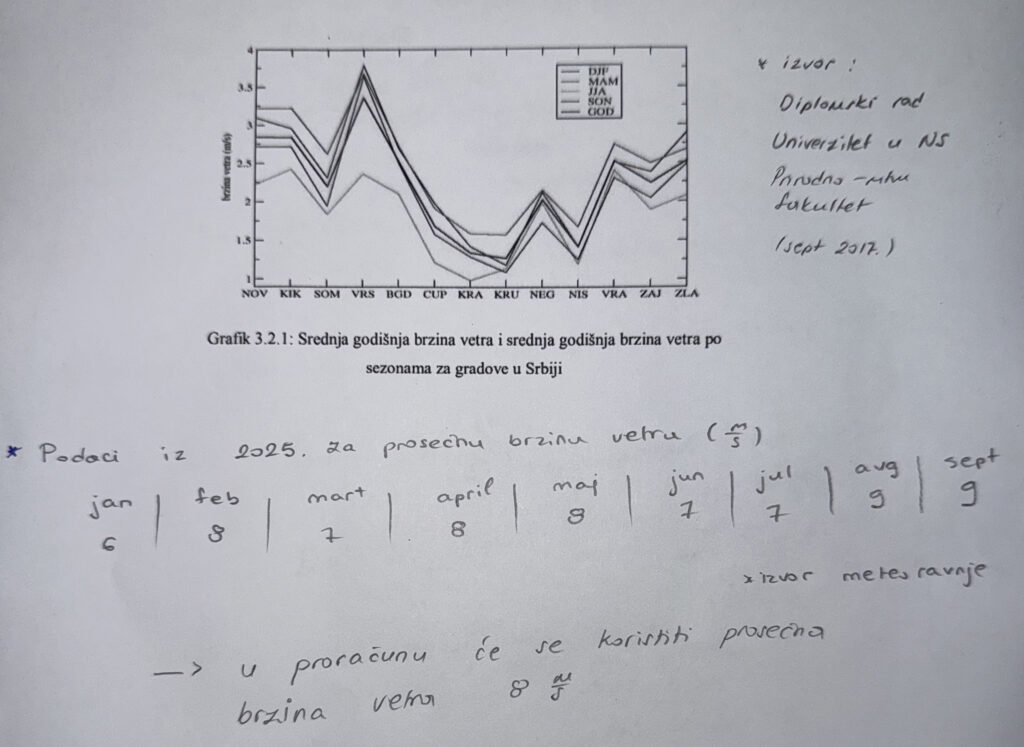 4
3.5
3
2.5
2
1.5
1
brzina vetra (m/s)
DJF
MAM
JJA
SON
GOD
NOV KIK SOM VRS BGD CUP KRA KRU NEG NIS VRA ZAJ ZLA
* izvor :
Diplomski rad
Univerzitet u NS
Prirodno-mtu
fakultet
(sept 2017.)
Grafik 3.2.1: Srednja godišnja brzina vetra i srednja godišnja brzina vetra po
sezonama za gradove u Srbiji
* Podaci iz 2025. za prosečnu brzinu vetru (m/s)
jan | feb | mart | april | maj | jun | jul | avg | sept
6 | 8 | 7 | 8 | 8 | 7 | 7 | 9 | 9
* izvor
—> u proračunu će se koristiti prosečna
brzina vetra 8 m/s